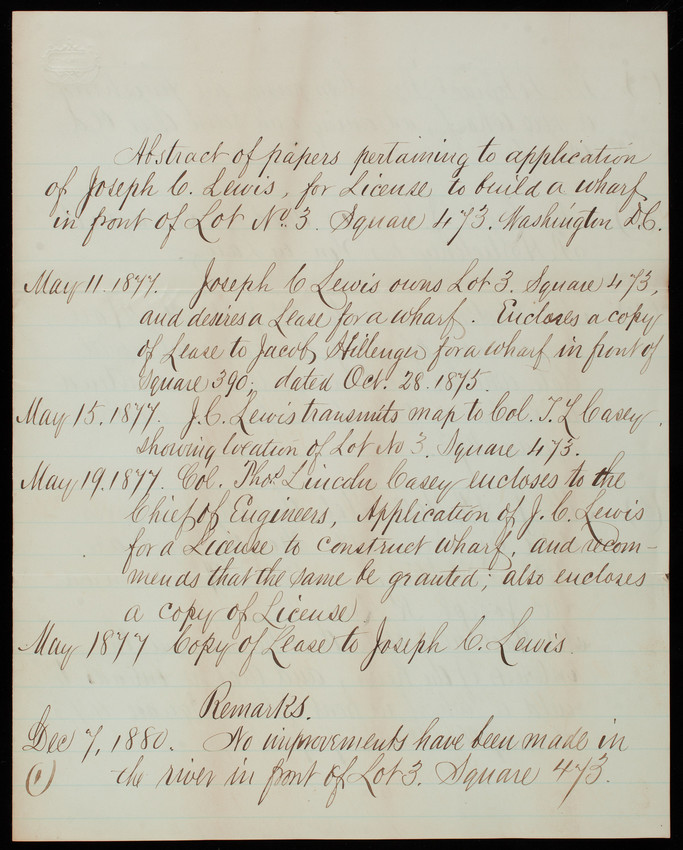 Abstract of papers pertaining to application
of Joseph C. Lewis, for License to build a wharf
in front of Lot No. 3. Square 473. Washington D.C.
May 11. 1877. Joseph C Lewis owns Lot 3. Square 473,
and desires a Lease for a wharf. Encloses a copy
of Lease to Jacob Hillenger for a wharf in front of
Square 390; dated Oct. 28. 1875.
May 15. 1877. J. C. Lewis transmits map to Col. T. L Casey.
showing location of Lot No 3. Square 473.
May 19. 1877. Col. Thos. Lincoln Casey encloses to the
Chief of Engineers, Application of J. C. Lewis
for a License to construct wharf, and recom-
mends that the same be granted; also encloses
a copy of License
May 1877 Copy of Lease to Joseph C. Lewis.
Remarks.
Dec 7, 1880. No improvements have been made in
(1) the river in front of Lot 3. Square 473.